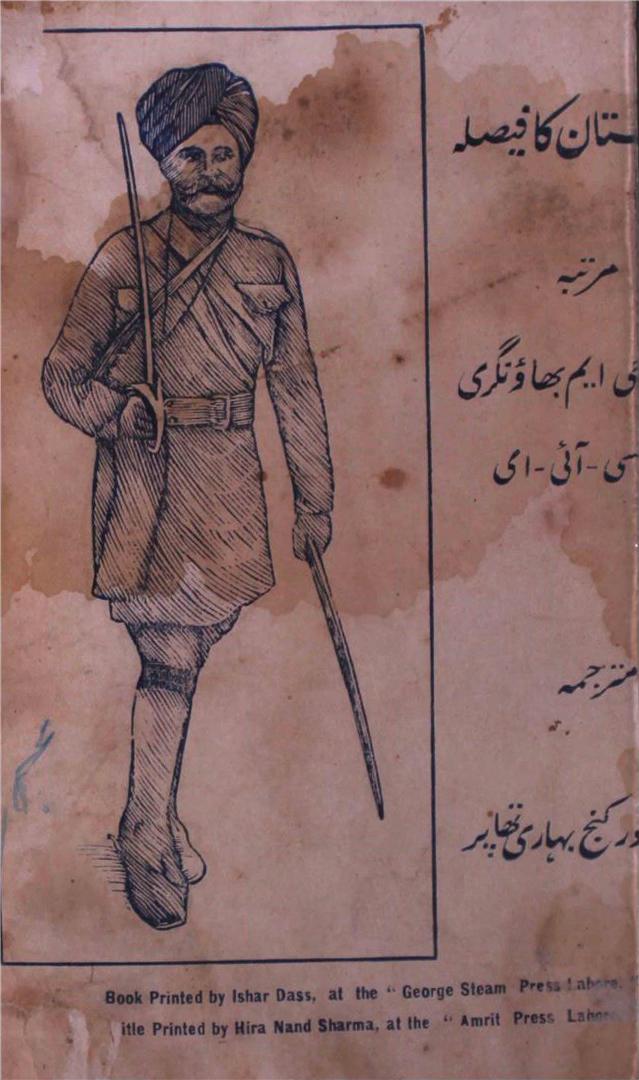 ستان کا فیصلہ
مرتبہ
ئی ایم بھاؤنگری
سی-آئی-ای
مترجمہ
در کنج بہاری تھاپر
Book Printed by Ishar Dass, at the “ George Steam Press Lahore.
itle Printed by Hira Nand Sharma, at the “ Amrit Press Lahore